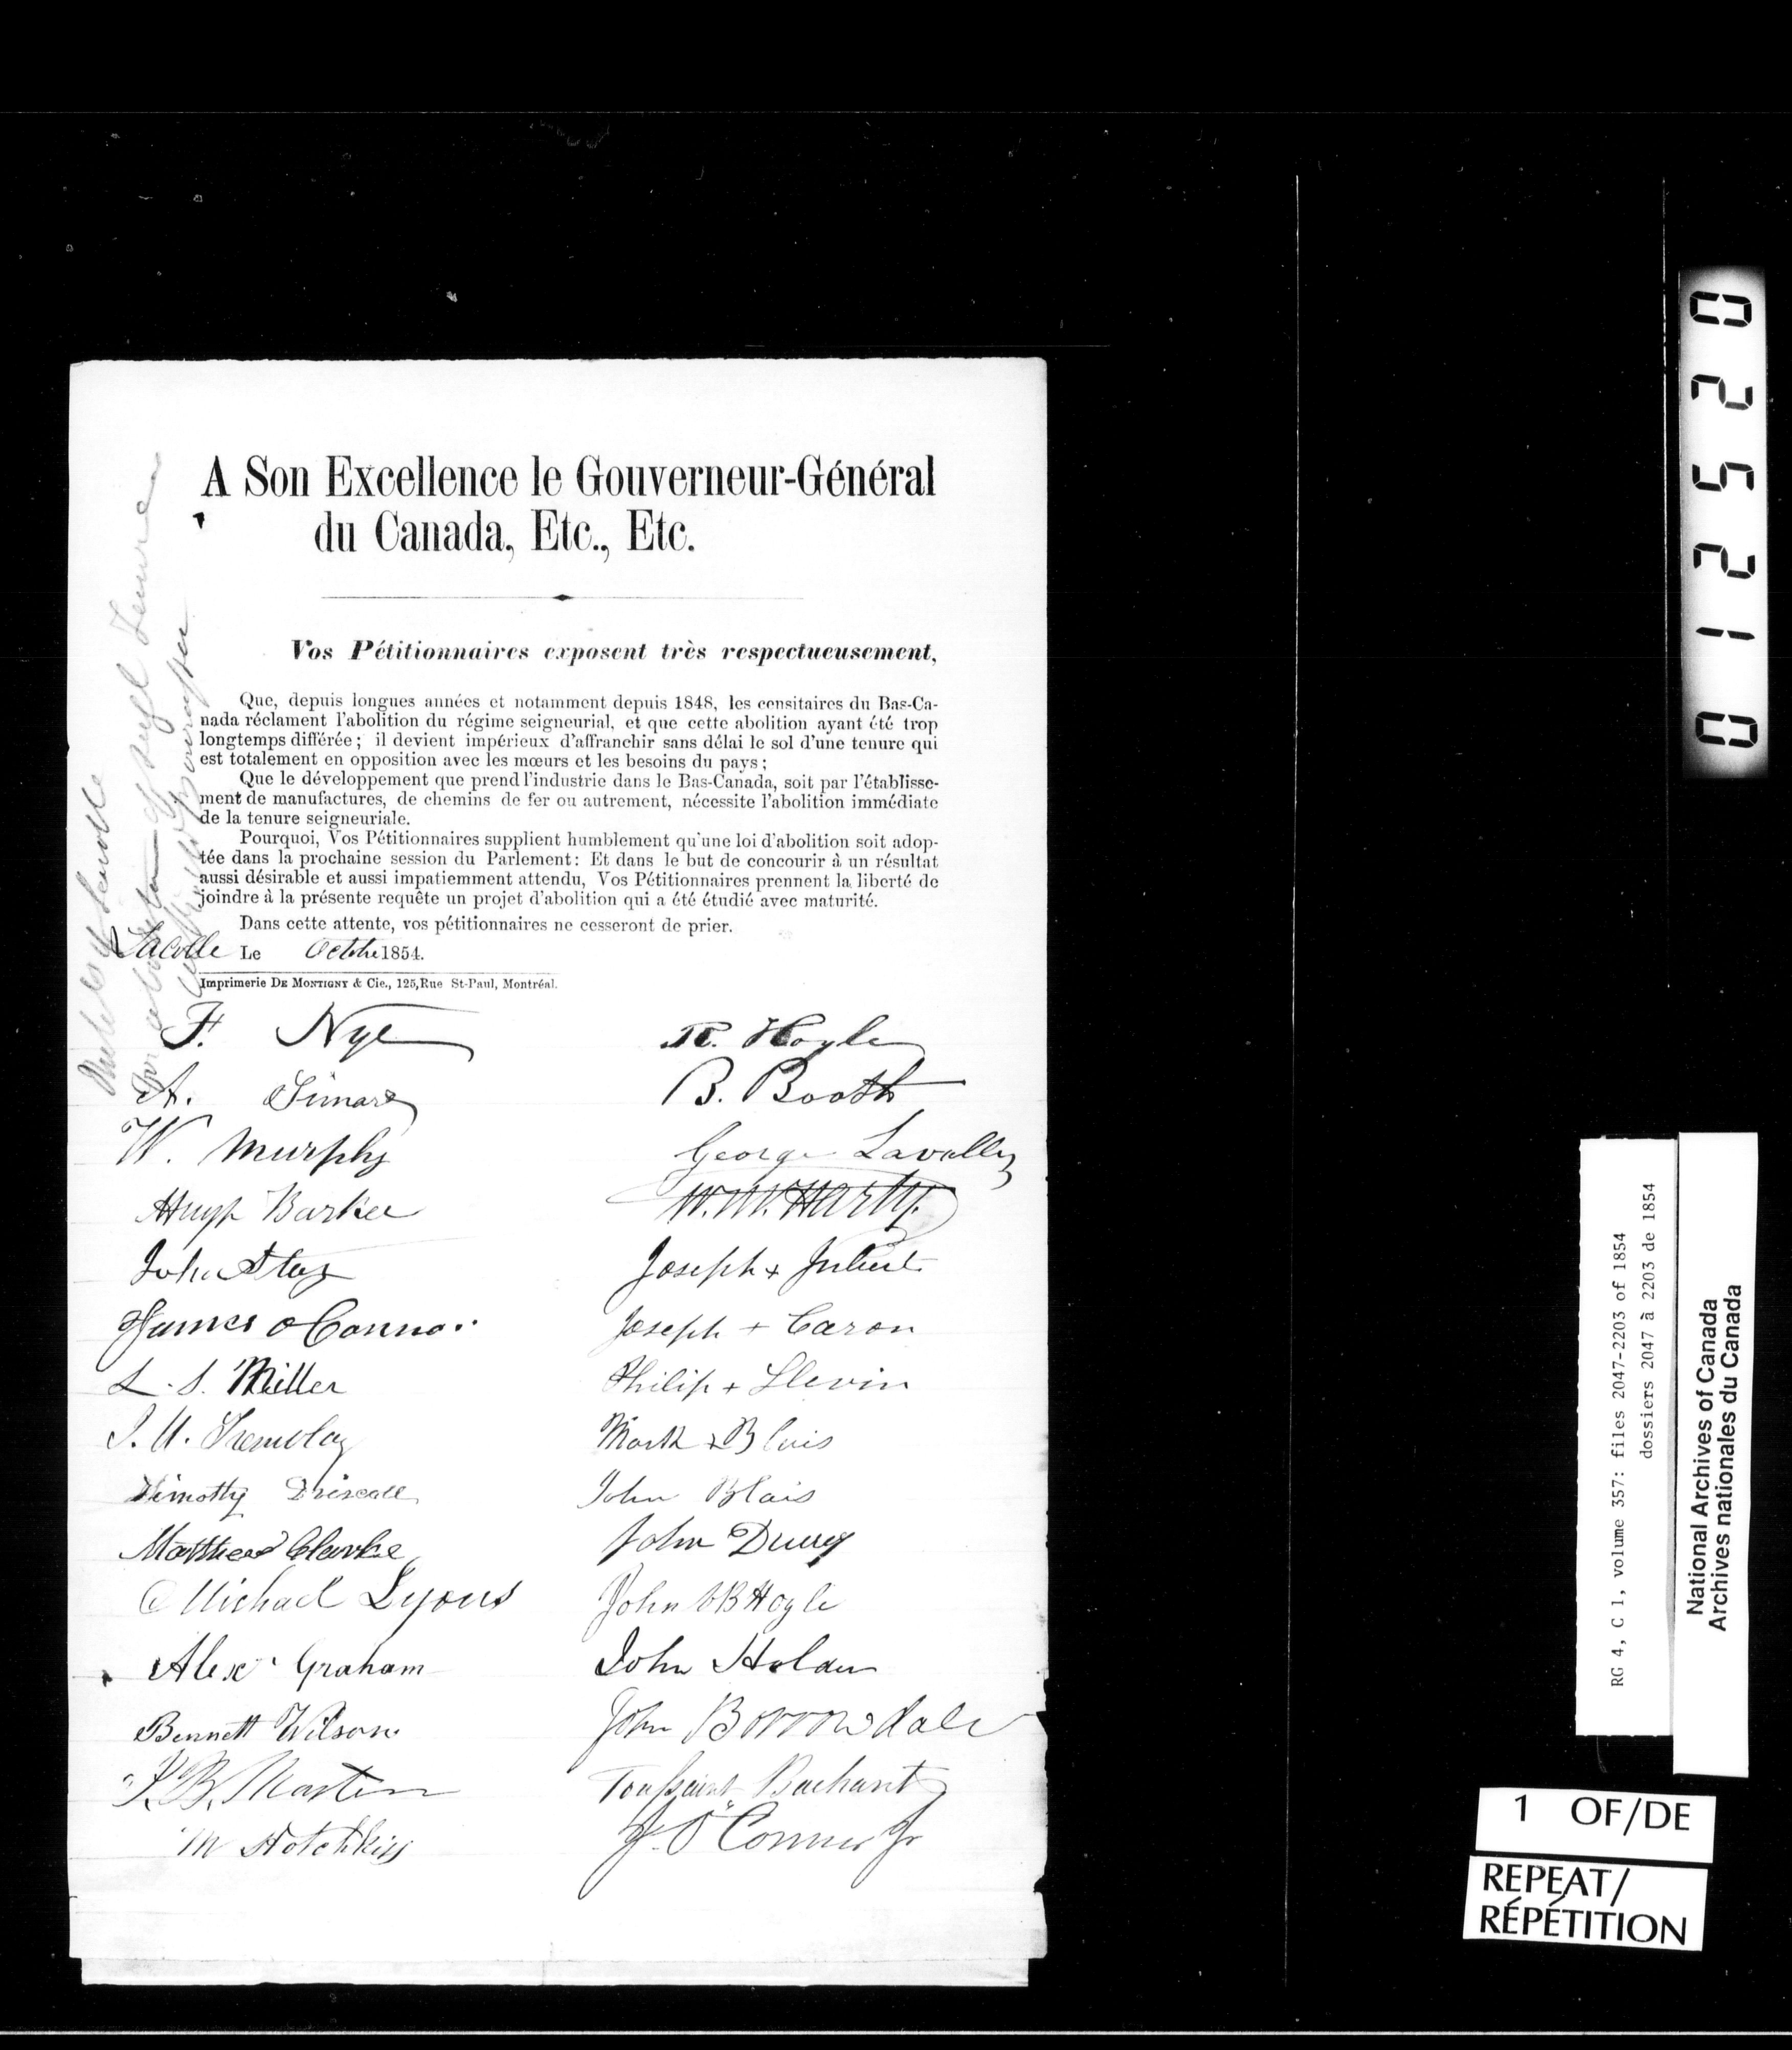 A Son Excellence le Gouverneur-Général
du Canada, Etc., Etc.
Vos Pétitionnaires exposent très respectueusement,
Que, depuis longues années et notamment depuis 1848, les censitaires du Bas-Ca-
nada réclament l'abolition du régime seigneurial, et que cette abolition ayant été trop
longtemps différée ; il devient impérieux d'affranchir sans délai le sol d'une tenure qui
est totalement en opposition avec les mœurs et les besoins du pays ;
Que le développement que prend l'industrie dans le Bas-Canada, soit par l'établisse-
ment de manufactures, de chemins de fer ou autrement, nécessite l'abolition immédiate
de la tenure seigneuriale.
Pourquoi, Vos Pétitionnaires supplient humblement qu'une loi d'abolition soit adop-
tée dans la prochaine session du Parlement: Et dans le but de concourir à un résultat
aussi désirable et aussi impatiemment attendu, Vos Pétitionnaires prennent la liberté de
joindre à la présente requête un projet d'abolition qui a été étudié avec maturité.
Dans cette attente, vos pétitionnaires ne cesseront de prier.
Lacolle Le Octobre 1854.
Imprimerie DE MONTIGNY & Cie., 125, Rue St-Paul, Montréal.
F. Nye
A. Simard
W. Murphy
Hugh Barker
John
James o Connor
L. S. Miller
Tremblay
Timothy Driscoll
Matthew Clarke
Michael Lyons
Alexr Graham
Bennett Wilson
Martin
M Hotchkiss
R. Hoyle
B. Booth
George Lavalley
W. W. Hartly
Joseph +
Joseph + Caron
Philip +
Mark + Blais
John Blais
John Duey
John Hoyle
John Holden
John Borrowdale
Toussaint
J. O'Conner Jr
of Seigl Tenure
02510
RG 4, C 1, volume 357: files 2047-2203 of 1854
dossiers 2047 à 2203 de 1854
National Archives of Canada
Archives nationales du Canada
1 OF/DE
REPEAT/
RÉPÉTITION